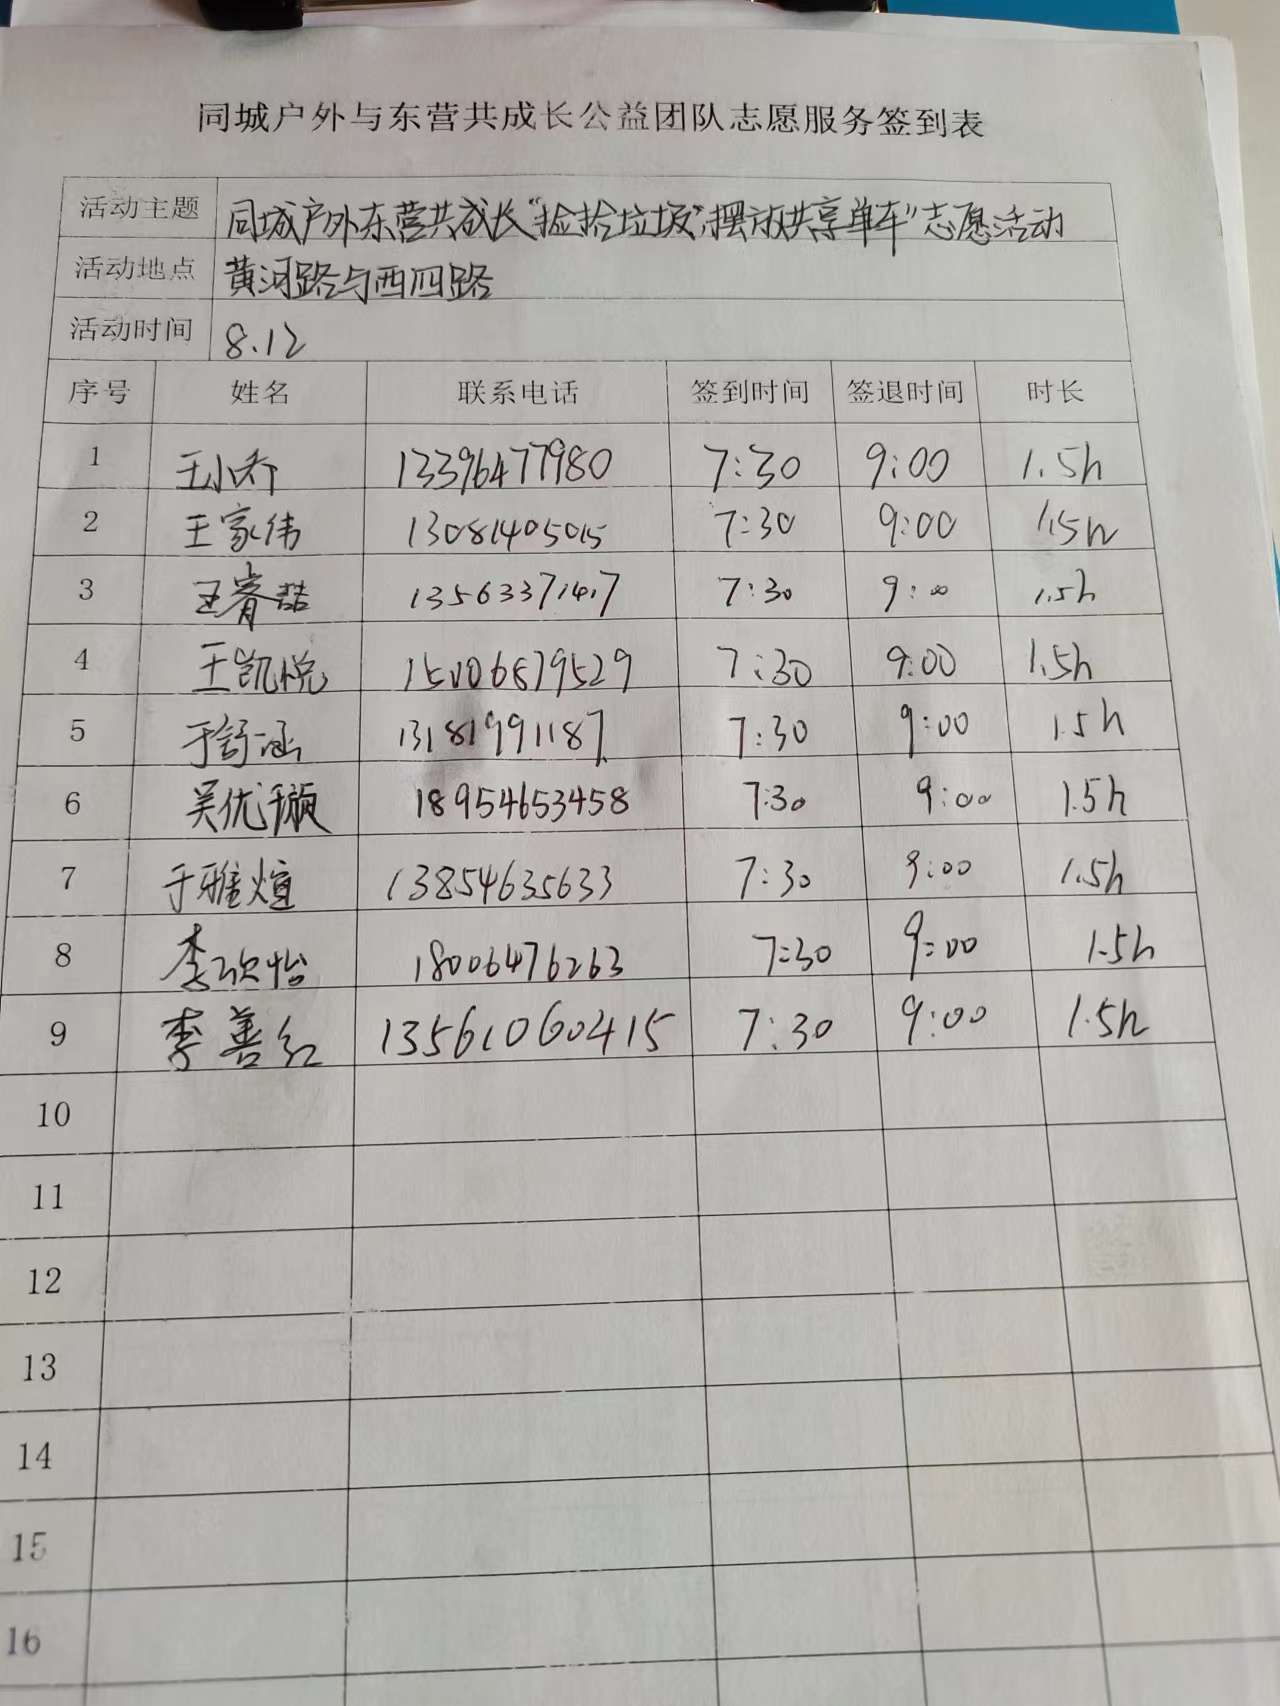 同城户外与东营共成长公益团队志愿服务签到表
活动主题 同城户外东营共成长“捡拾垃圾”,摆放共享单车”志愿活动
活动地点 黄河路与西四路
活动时间 8.12
序号 姓名 联系电话 签到时间 签退时间 时长
1 王小乔 13396477980 7:30 9:00 1.5h
2 王家伟 13081405015 7:30 9:00 1.5h
3 王睿喆 7:30 9:00 1.5h
4 王凯悦 15006879529 7:30 9:00 1.5h
5 于舒涵 13181991187 7:30 9:00 1.5h
6 吴优璇 18954653458 7:30 9:00 1.5h
7 于雅煊 13854635633 7:30 9:00 1.5h
8 李欣怡 18006476263 7:30 9:00 1.5h
9 李善红 13561060415 7:30 9:00 1.5h
10
11
12
13
14
15
16